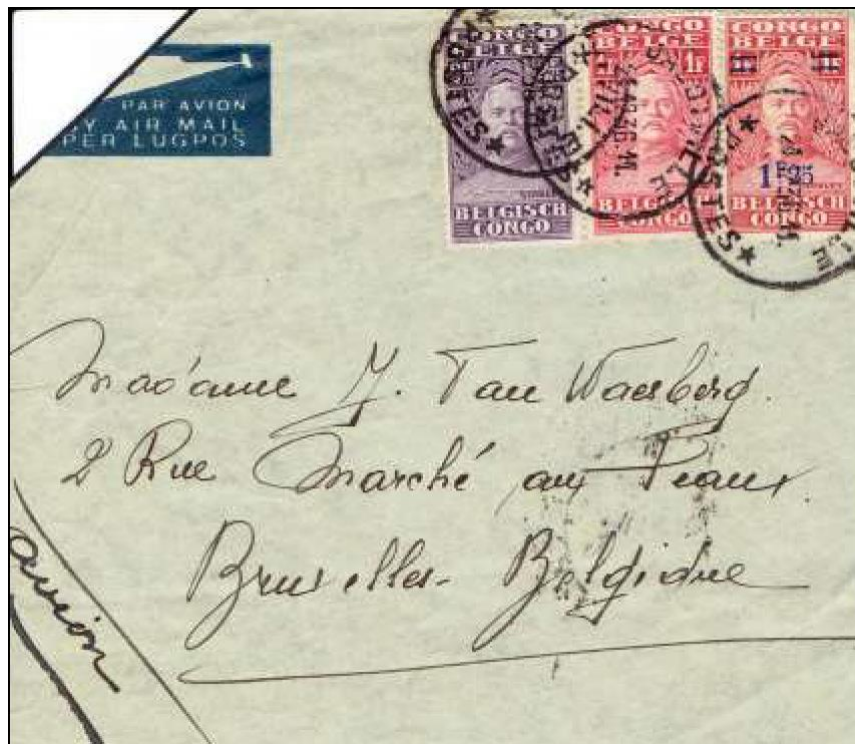 PAR AVION
BY AIR MAIL
PER LUGPOS
CONGO BELGE
BELGISCH CONGO
CONGO BELGE
1F
BELGISCH CONGO
CONGO BELGE
1F25
BELGISCH CONGO
POSTES
VILLE
Madame J. Van Waesberg.
2 Rue Marché aux Peaux.
Bruxelles - Belgique
avion